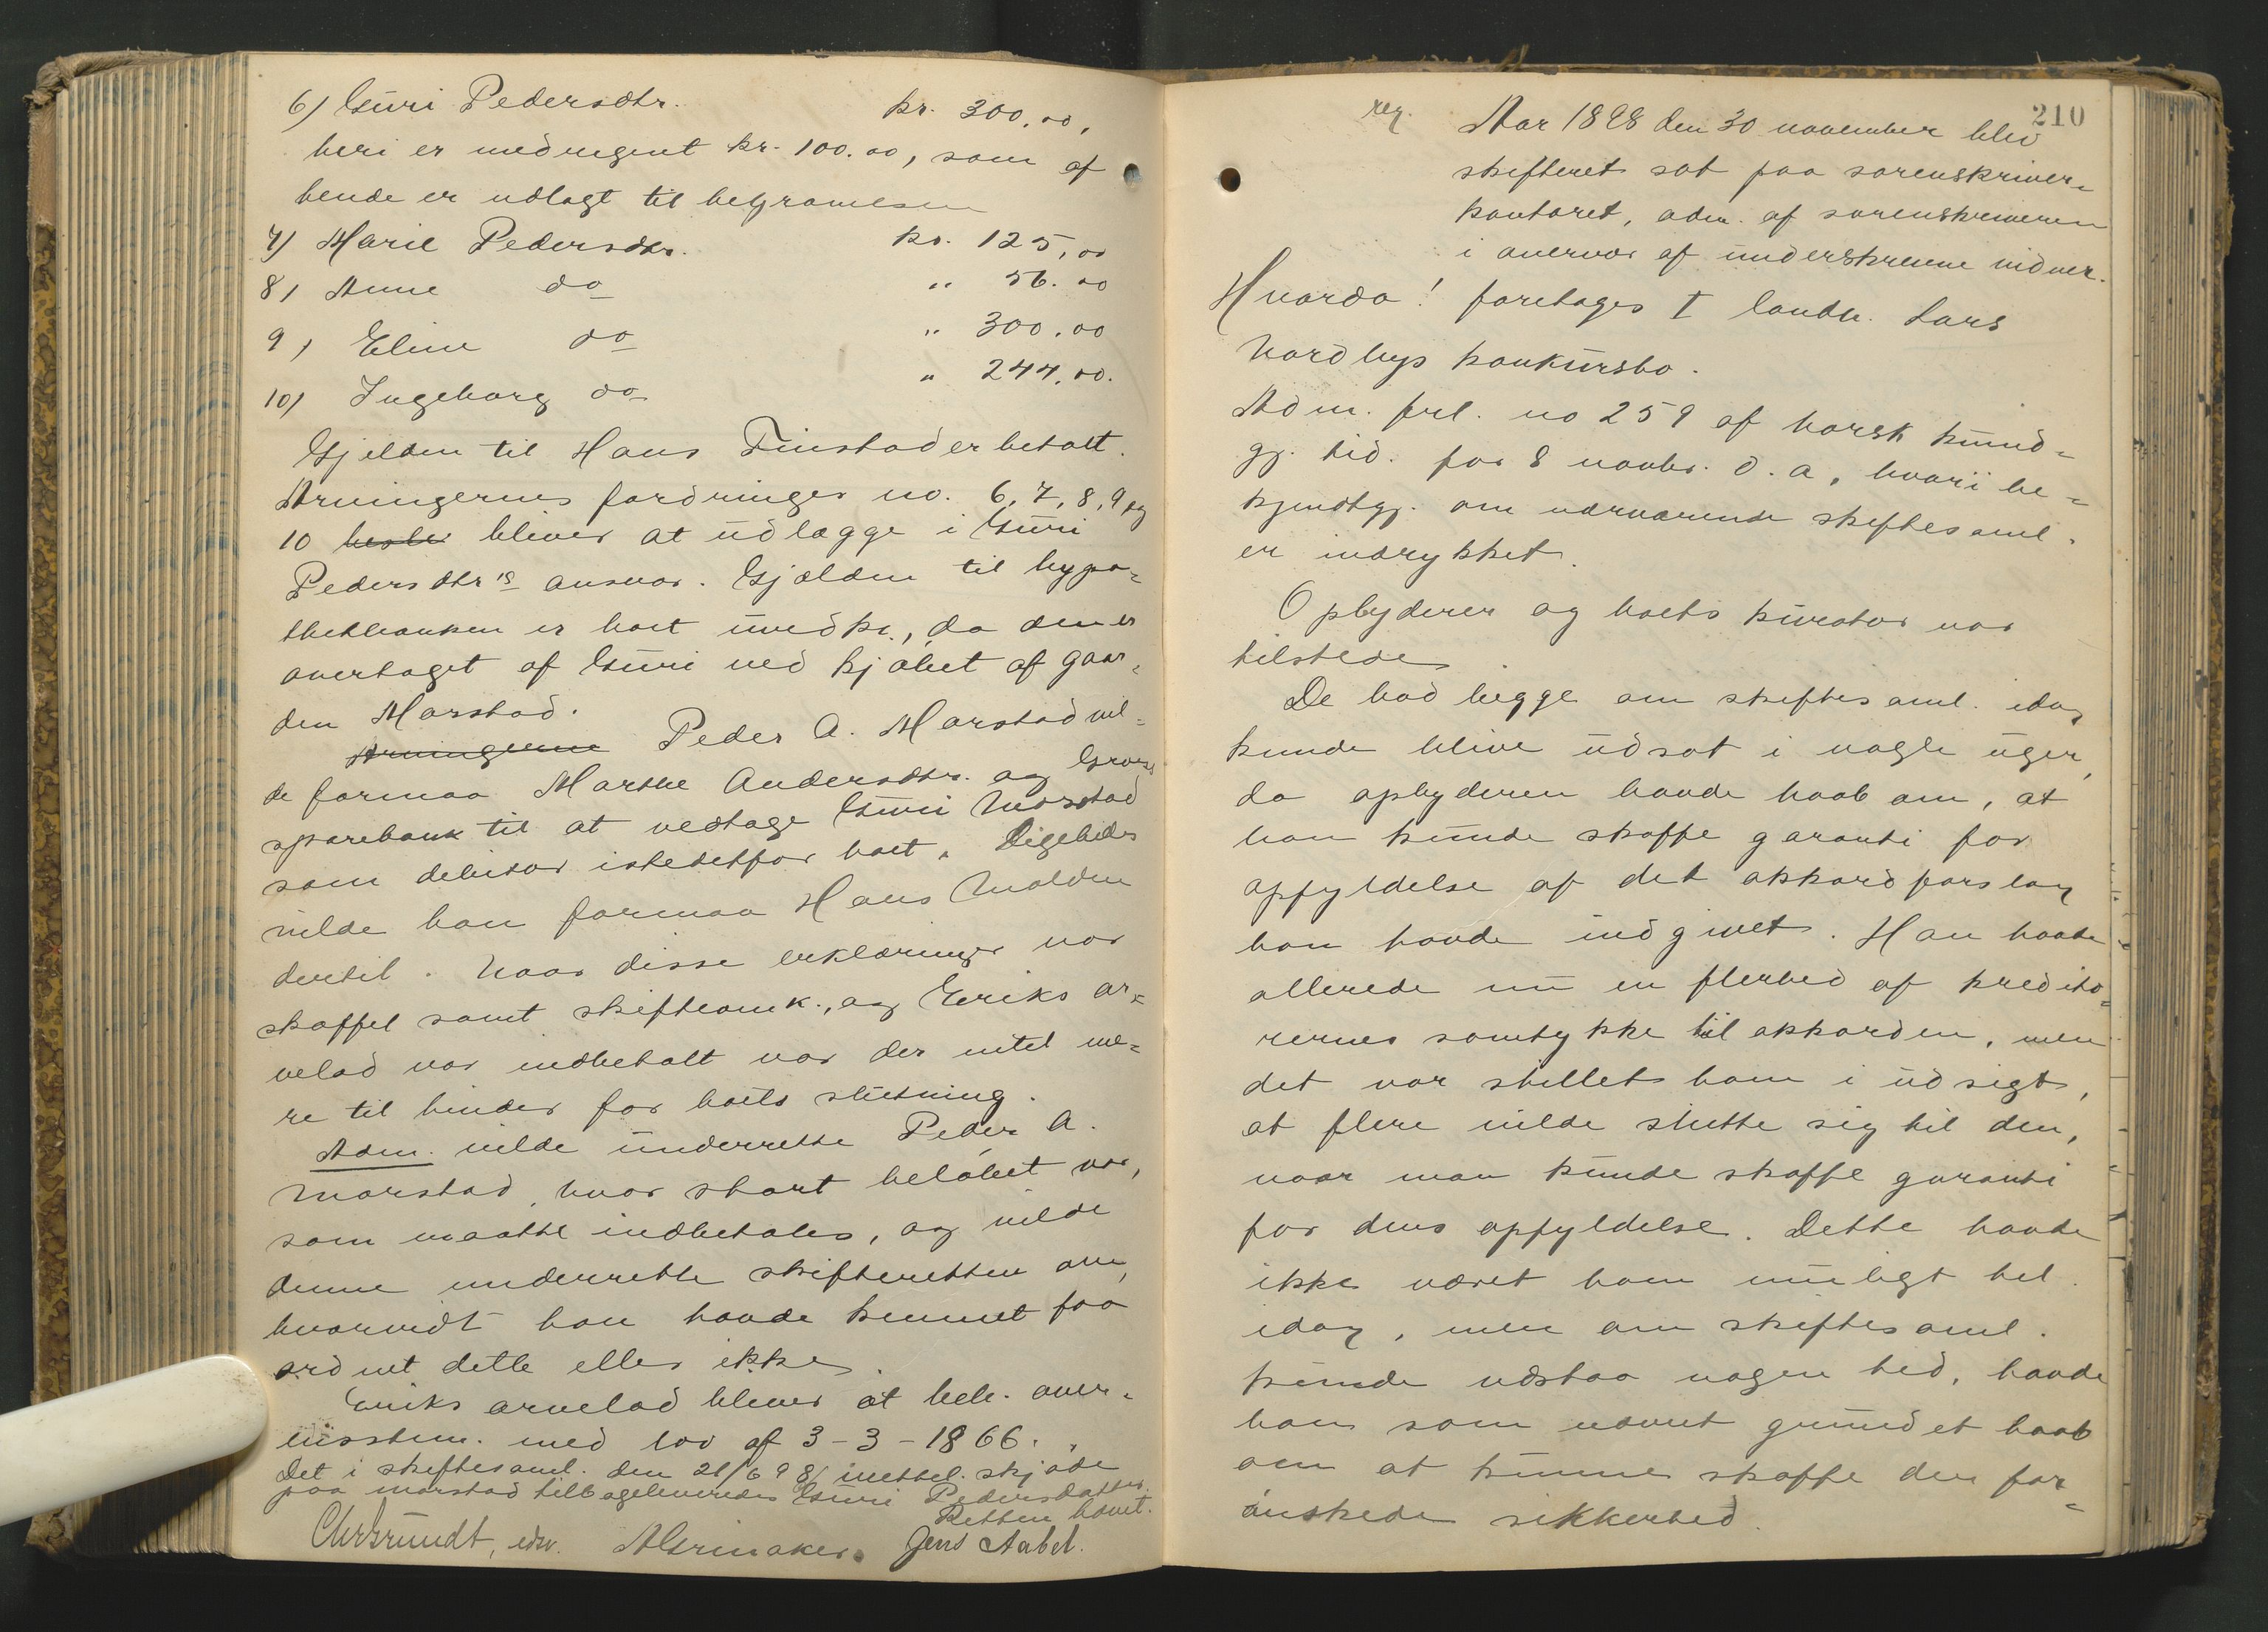 6) Guri Pedersdtr. kr. 300,00,
heri er medregnet kr. 100.00, som af
hende er udlagt til begravelsen
7) Marie Pedersdtr. kr. 125,00
8) Anne do " 56.00
9) Eline do " 300.00
10) Ingeborg do " 244,00.
Gjelden til Hans Finstad er betalt.
Arvingernes fordringer no. 6, 7, 8, 9 og
10 bliver at udlægge i Guri
Pedersdtr's ansvar. Gjælden til hypo-
thekbanken er boet uvedk., da den er
overtaget af Guri ved kjøbet af gaar-
den Morstad.
Arvingerne Peder A. Morstad vil-
de formaa Marthe Andersdtr. og Grorss
sparebank til at vedtage Guri Morstad
som debitor istedetfor boet. Ligeledes
vilde han formaa Hans Molden
dertil. Naar disse erklæringer var
skaffet samt skifteomk., og Eriks ar-
velod var indbetalt var der intet me-
re til hinder for boets slutning.
Adm. vilde underrette Peder A.
Morstad, hvor stort beløbet var,
som maatte indbetales, og vilde
denne underrette skifteretten om,
hvorvidt han havde kunnet faa
ordnet dette eller ikke.
Eriks arvelod bliver at beh. over-
enisstem. med lov af 3-3-1866.
Det i skiftesaml. den 21/6 98 meddel. skjøde
paa Morstad tilbageleveredes Guri Pedersdatter.
Retten hævet.
Chr Grundt, edsv. A Grinaker. Jens Aabel.
210
reg. Aar 1898 den 30 november blev
skifteret sat paa sorenskriver-
kontoret, adm. af sorenskriveren
i overvær af underskrevne vidner.
Hvorda! foretages I landh. Lars
Nordbys konkursbo.
Adm. frl. no 259 af norsk kund-
gj. tid. for 8 novbr. d. a, hvori be-
kjendtgj. om nærværende skiftesaml.
er indrykket.
Opbyderen og boets kurator var
tilstede.
De bad begge om skiftesaml. idag
kunde blive udsat i nogle uger,
da opbyderen havde haab om, at
han kunde skaffe garanti for
opfyldelse af det akkordforslag
han havde indgivet. Han havde
allerede nu en flerhed af kredito-
rernes samtykke til akkorden, men
det var stillet ham i udsigt,
at flere vilde slutte sig til den,
naar man kunde skaffe garanti
for dens opfyldelse. Dette havde
ikke været ham muligt til
idag, men om skiftesaml.
kunde udstaa nogen tid, havde
han som nævnt grundet haab
om at kunne skaffe den for-
ønskede sikkerhed.